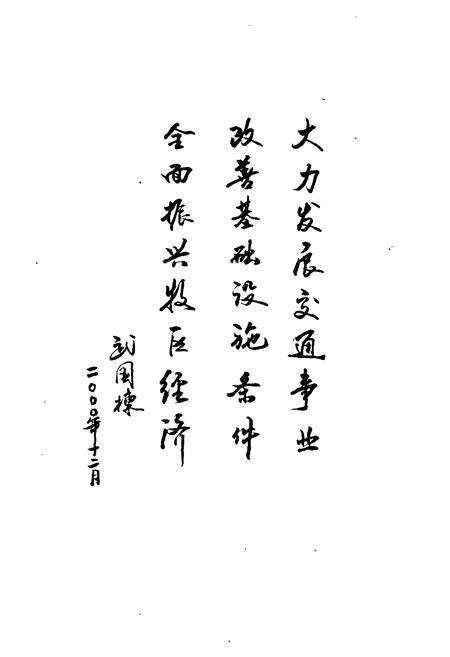 大力发展交通事业
改善基础设施条件
全面振兴牧区经济
武国栋
二〇〇〇年十二月